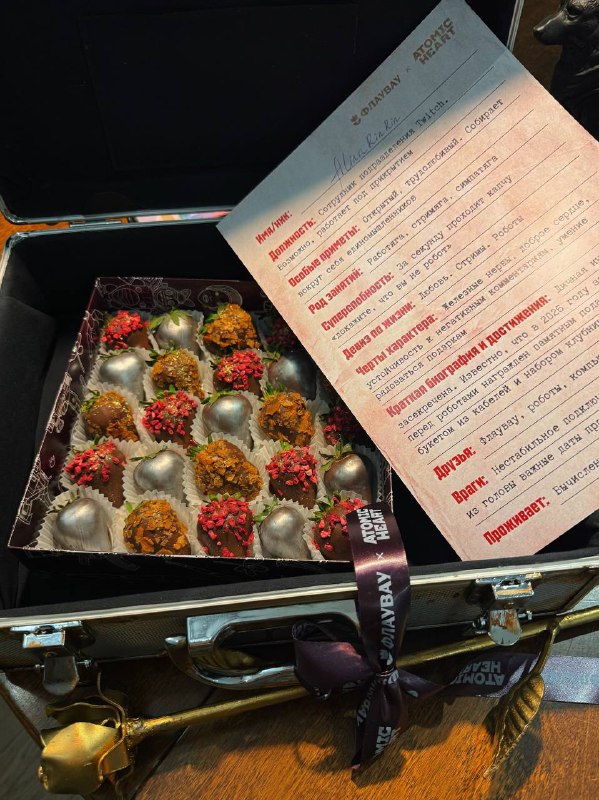 ФЛАУВАУ × ATOMIC HEART
Имя/ник: AlanRinRin
Должность: Сотрудник подразделения Twitch.
Возможно, работает под прикрытием
Особые приметы: Открытый, трудолюбивый. Собирает
вокруг себя единомышленников
Род занятий: Работяга, стримяга, симпатяга
Суперспособность: За секунду проходит капчу
«докажите, что вы не робот»
Девиз по жизни: Любовь. Стримы. Роботы
Черты характера: Железные нервы, доброе сердце,
устойчивость к негативным комментариям, умение
радоваться подаркам
Краткая биография и достижения: Личная
засекречена. Известно, что в 2026 году
перед роботами награжден памятным
букетом из кабелей и набором клубники
Друзья: Флаувау, роботы,
Враги: Нестабильное
из головы важные даты
Проживает:
ATOMIC HEART × ФЛАУВАУ
ATOMIC HEART
ФЛАУВАУ
ATOMIC HEART